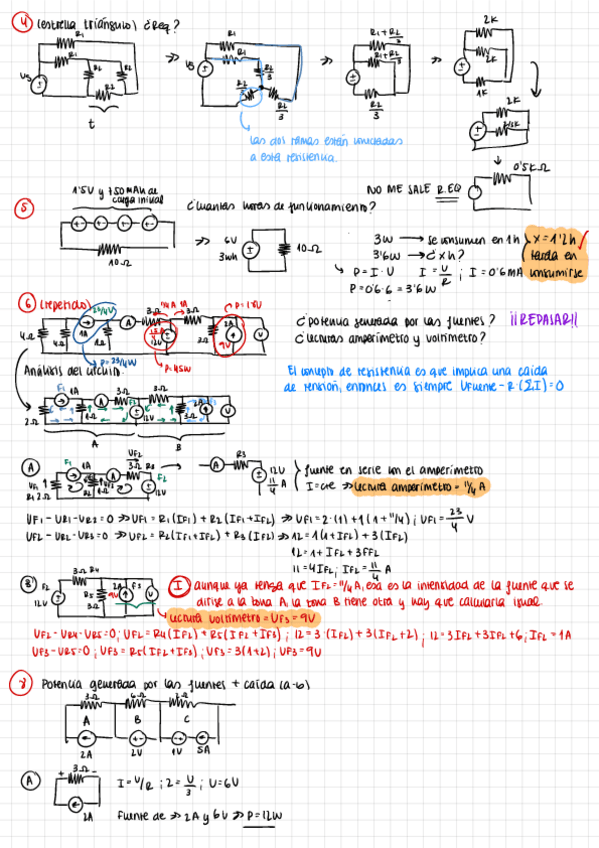 4 (estrella triángulo) ¿Req?
R1
R1
R2
R2
R2
Vg
t
>>
R1
R1
Vg
R2/3
R2/3
R2/3
las dos ramas están conectadas
a esta resistencia.
>>
R1+R2/3
R1+R2/3
R2/3
>>
2K
2K
1K
2K
0'5KΩ
NO ME SALE R.EQ
5
1'5V y 750mAh de
carga inicial
10Ω
¿Cuantas horas de funcionamiento?
>>
6V
3Wh
10Ω
3W → se consumen en 1h
3'6W → ¿x h?
x=1'2h
tarda en
consumirse
P=I·U I=U/R ; I=0'6mA
P=0'6·6=3'6W
6 (repetido)
23/4V
P=23/4W
P=45W
¿potencia generada por las fuentes?
¡¡REPASAR!!
¿lecturas amperímetro y voltímetro?
Análisis del circuito
El concepto de resistencia es que implica una caída
de tensión, entonces es siempre Vfuente-R·(ΣI)=0
A
B
A
fuente en serie con el amperímetro
I=cte → lectura amperímetro = 11/4 A
UF1-UR1-UR2=0 >> UF1=R1(IF1)+R2(IF1+IF2) >> UF1=2·(1)+1(1+11/4); UF1=23/4 V
UF2-UR2-UR3=0 >> UF2=R2(IF1+IF2)+R3(IF2) >> 12=1(1+IF2)+3(IF2)
12=1+IF2+3IF2
11=4IF2; IF2=11/4 A
B
I aunque ya tenga que IF2=11/4A, esa es la intensidad de la fuente que se
dirige a la zona A, la zona B tiene otra y hay que calcularla igual.
lectura voltímetro = UF3=9V
UF2-UR4-UR5=0; UF2=R4(IF2)+R5(IF2+IF3); 12=3·(IF2)+3(IF2+2); 12=3IF2+3IF2+6; IF2=1A
UF3-UR5=0; UF3=R5(IF2+IF3); UF3=3(1+2); UF3=9V
Potencia generada por las fuentes + caída (a-b)
3Ω
6Ω
A
B
C
2A
2V
1V
5A
A
+ 3Ω -
2A
I=U/R ; 2=U/3 ; U=6V
Fuente de >> 2A y 6V >> P=12W